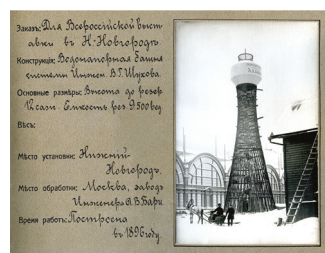 Заказъ: Для Всероссійской выст
авки въ Н-Новгородѣ.
Конструкція: Водонапорная башня
системы Инжен. В.Г.Шухова.
Основные размѣры: Высота до резер.
12 саж. Емкость рез. 9500 вед.
Вѣсъ:
Мѣсто установки: Нижній-
Новгородъ.
Мѣсто обработки: Москва, заводъ
Инженера А.В.Бари.
Время работъ: Построена
въ 1896 году.